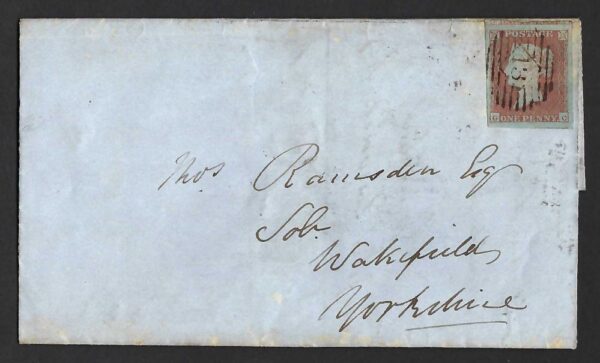 POSTAGE
ONE PENNY
Thos Ramsden Esq
Solr
Wakefield
Yorkshire